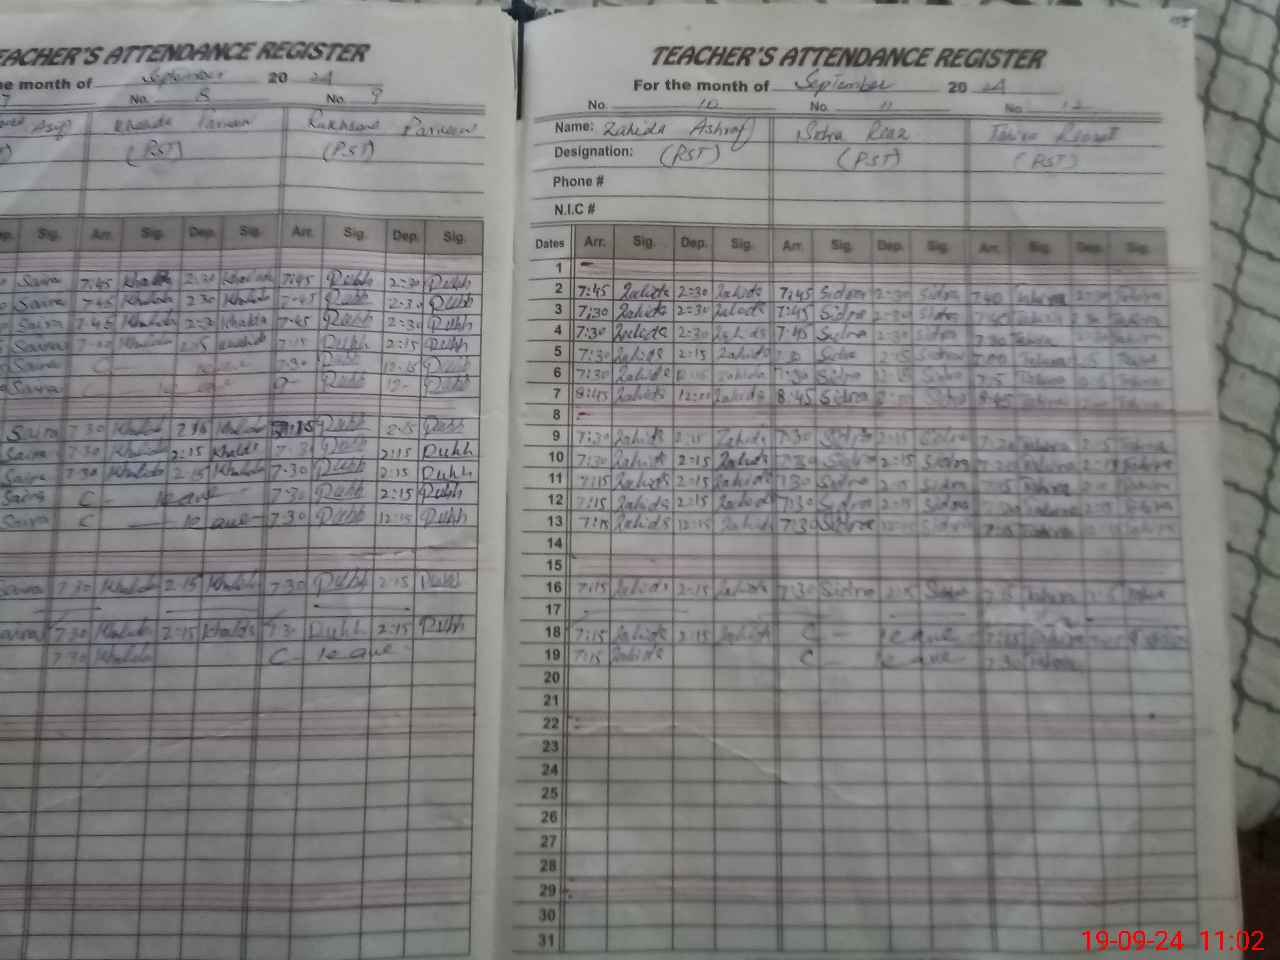 EACHER'S ATTENDANCE REGISTER
he month of September 20 24
7 No. 8 No. 9
Asif Khalida Parveen Rukhsana Parveen
(PST) (PST)
Sig. Arr. Sig. Dep. Sig. Arr. Sig. Dep. Sig.
Saira 7:45 Khalida 2:30 Khalida 7:45 Rukh 2:30 Rukh
Saira 7:45 Khalida 2:30 Khalida 7:45 Rukh 2:30 Rukh
Saira 7:45 Khalida 2:30 Khalida 7:45 Rukh 2:30 Rukh
Saira Khalida 2:15 Khalida 7:15 Rukh 2:15 Rukh
Saira C - leave 7:30 Rukh 12:15 Rukh
Saira C leave Rukh 12 Rukh
Saira 7:30 Khalida 2:15 Khalida Rukh 2:15 Rukh
Saira 7:30 Khalida 2:15 Khalida 7:3 Rukh 2:15 Rukh
Saira 7:30 Khalida 2:15 Khalida 7:30 Rukh 2:15 Rukh
Saira C - leave 7:30 Rukh 2:15 Rukh
Saira C - leave 7:30 Rukh 12:15 Rukh
Saira 7:30 Khalida 2:15 Khalida 7:30 Rukh 2:15 Rukh
Saira 7:30 Khalida 2:15 Khalida 7:30 Rukh 2:15 Rukh
7:30 Khalida C - leave
TEACHER'S ATTENDANCE REGISTER
For the month of September 20 24
No 10 No. 11 No. 12
Name: Zahida Ashraf Sidra Riaz Tahira
Designation: (PST) (PST) (PST)
Phone #
N.I.C #
Dates Arr. Sig. Dep. Sig. Arr. Sig. Dep. Sig. Arr. Sig. Dep. Sig.
1
2 7:45 Zahida 2:30 Zahida 7:45 Sidra 2:30 Sidra 7:40 Tahira 2:30 Tahira
3 7:30 Zahida 2:30 Zahida 7:45 Sidra 2:30 Sidra Tahira Tahira
4 7:30 Zahida 2:30 Zahida 7:45 Sidra 2:30 Sidra 7:30 Tahira Tahira
5 7:30 Zahida 2:15 Zahida Sidra 2:15 Sidra 7:00 Tahira Tahira
6 7:30 Zahida 12:15 Zahida 7:30 Sidra 12:15 Sidra Tahira Tahira
7 8:45 Zahida 12:00 Zahida 8:45 Sidra Sidra 8:45 Tahira Tahira
8
9 7:30 Zahida 2:15 Zahida 7:30 Sidra 2:15 Sidra 7:30 Tahira 2:15 Tahira
10 7:30 Zahida 2:15 Zahida 7:30 Sidra 2:15 Sidra Tahira 2:15 Tahira
11 7:15 Zahida 2:15 Zahida 7:30 Sidra 2:15 Sidra 7:15 Tahira Tahira
12 7:15 Zahida 2:15 Zahida 7:30 Sidra 2:15 Sidra Tahira 2:15 Tahira
13 7:15 Zahida 12:15 Zahida 7:30 Sidra 12:15 Sidra 7:15 Tahira Tahira
14
15
16 7:15 Zahida 2:15 Zahida 7:30 Sidra 2:15 Sidra Tahira Tahira
17
18 7:15 Zahida 2:15 Zahida C - leave 7:15 Tahira
19 7:15 Zahida C - leave 7:30 Tahira
20
21
22
23
24
25
26
27
28
29
30
31
19-09-24 11:02